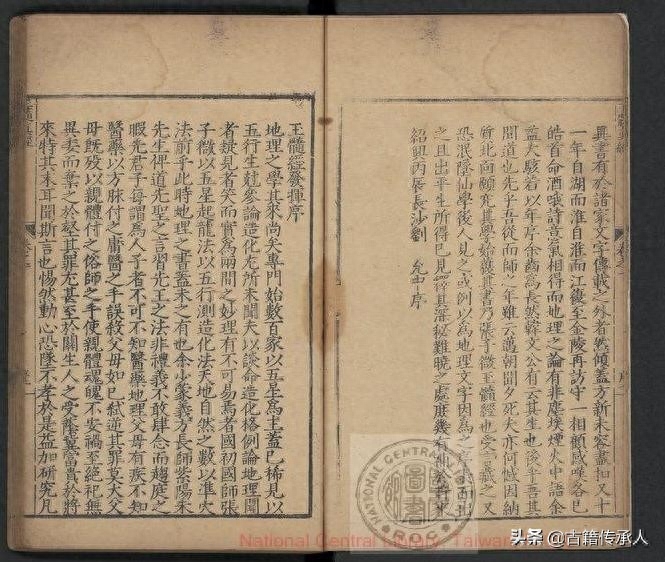 異書有於諸家文字傳載之外者然傾蓋方新未容盡扣又十
一年自湖而淮自淮而江復至金陵再訪守一相顧感嘆各已
皓首命酒哦詩意氣相得而地理之論有非塵埃煙火中語余
益大駭若以年序余齒為長然韓文公有云其生也後乎吾其
聞道也先乎吾從而師之年雖云邁朝聞夕死夫亦何憾因納
質北向願充其學始發其書乃張子微玉髓經也受言藏之又
恐泯陰仙學後人見之或例以為地理文字因為之
之且出平生所得已見
紹興丙辰長沙劉 允中序
玉髓經發揮序
地理之學其來尚矣專門始數百家以五星為主蓋已稀見以
五行生尅參論造化尤所未聞夫以談命造化格例論地理聞
者疑見者笑而實為兩間之妙理有不可易焉者國初國師張
子微以五星起龍法以五行測造化法天地自然之數以準穴
法前乎此時地理之書蓋未之有也余少蒙義方長師紫陽朱
先生俾道先聖之言習先王之法非禮義不敢肆念而趨庭之
暇先君子每謂為人子者不可不知醫藥地理父母有疾不知
醫藥以方脉付之庸醫之手誤殺父母如已弑逆其罪莫大父
母既歿以親體付之俗師之手使親體魂魄不安禍至絕祀無
異委而棄之於壑其罪尤甚至於關生人之受蔭冀富貴於將
來特其末耳聞斯言也惕然動心恐墜不孝於是益加研究凡
National Central Library, Taiwan
NATIONAL CENTRAL LIBRARY
頭条 @古籍传承人